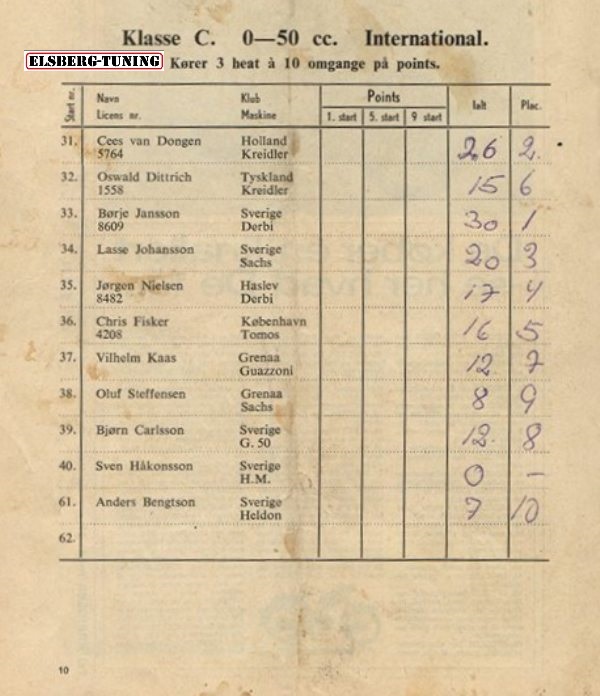 Klasse C. 0—50 cc. International.
ELSBERG-TUNING
Kører 3 heat à 10 omgange på points.
Start nr. Navn Klub Points Ialt Plac.
Licens nr. Maskine 1. start 5. start 9 start
31. Cees van Dongen Holland 26 2.
5764 Kreidler
32. Oswald Dittrich Tyskland 15 6
1558 Kreidler
33. Børje Jansson Sverige 30 1
8609 Derbi
34. Lasse Johansson Sverige 20 3
Sachs
35. Jørgen Nielsen Haslev 17 4
8482 Derbi
36. Chris Fisker København 16 5
4208 Tomos
37. Vilhelm Kaas Grenaa 12 7
Guazzoni
38. Oluf Steffensen Grenaa 8 9
Sachs
39. Bjørn Carlsson Sverige 12. 8
G. 50
40. Sven Håkonsson Sverige 0 –
H.M.
61. Anders Bengtson Sverige 7 10
Heldon
62.
10